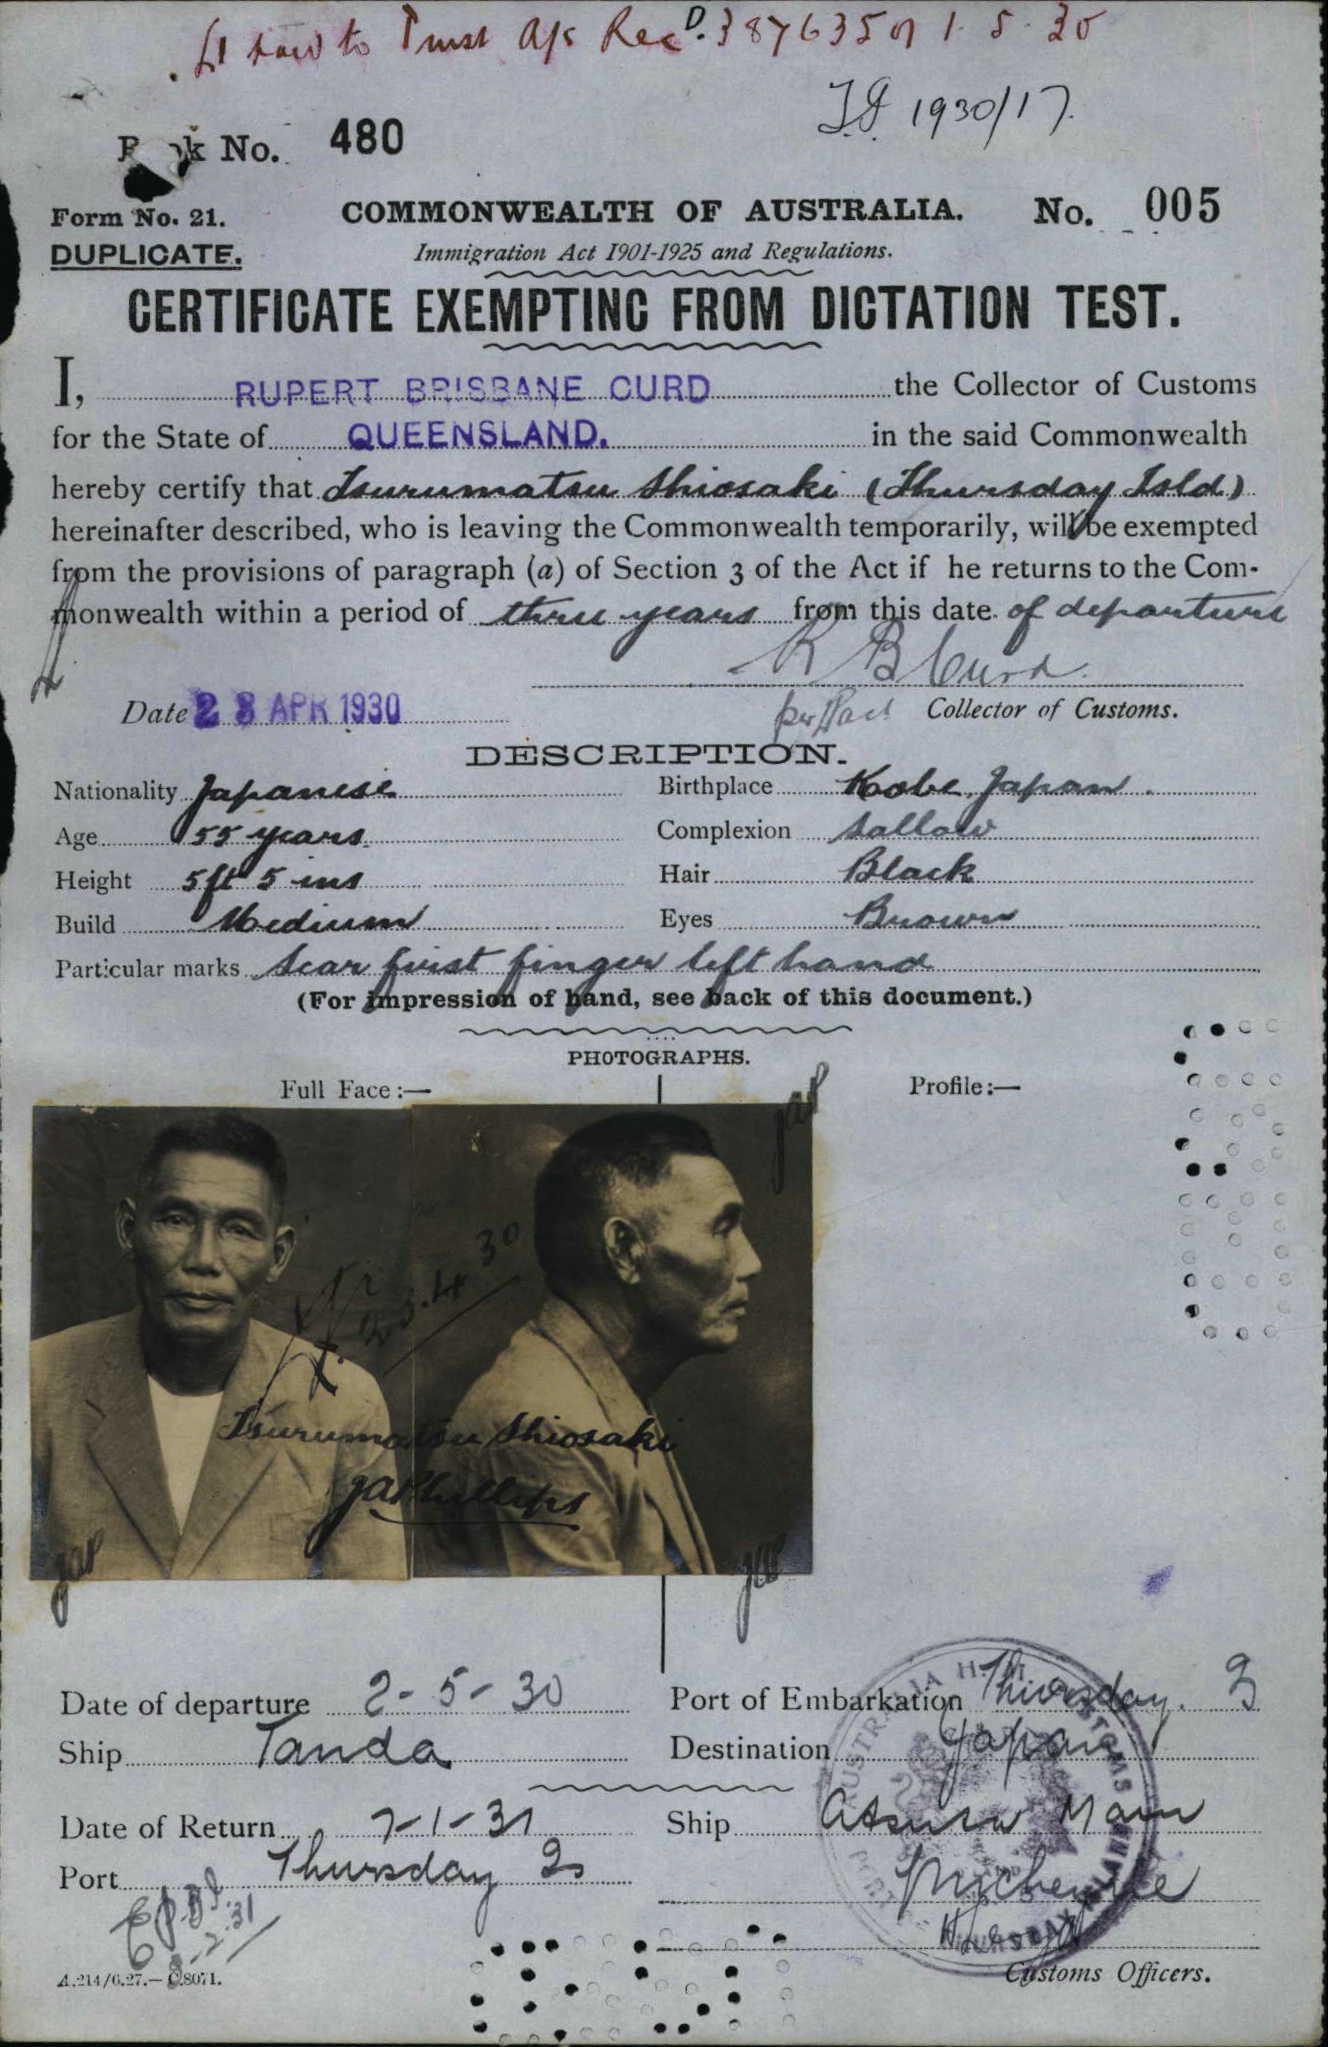 £1 paid to Trust a/c Rec. D. 387635 of 1.5.30
T.I 1930/17.
Book No. 480
Form No. 21. COMMONWEALTH OF AUSTRALIA. No. 005
DUPLICATE. Immigration Act 1901-1925 and Regulations.
CERTIFICATE EXEMPTING FROM DICTATION TEST.
I, RUPERT BRISBANE CURD the Collector of Customs
for the State of QUEENSLAND. in the said Commonwealth
hereby certify that Tsurumatsu Shiosaki (Thursday Isld)
hereinafter described, who is leaving the Commonwealth temporarily, will be exempted
from the provisions of paragraph (a) of Section 3 of the Act if he returns to the Com-
monwealth within a period of three years from this date of departure
R B Curd
Date 23 APR 1930 per Collector of Customs.
DESCRIPTION.
Nationality Japanese Birthplace Kobe, Japan.
Age 55 years Complexion Sallow
Height 5ft 5 ins Hair Black
Build Medium Eyes Brown
Particular marks Scar first finger left hand
(For impression of hand, see back of this document.)
PHOTOGRAPHS.
Full Face :— Profile :—
JAP
23.4.30
Tsurumatsu Shiosaki
JAPhillips
JAP JAP
Date of departure 2-5-30 Port of Embarkation Thursday. Is
Ship Tanda Destination Japan
Date of Return 7-1-31 Ship Atsuta Maru
Port Thursday Is
8.2.31
A.214/6.27.—C.8071. Customs Officers.
AUSTRALIA H.M. CUSTOMS
THURSDAY ISLAND